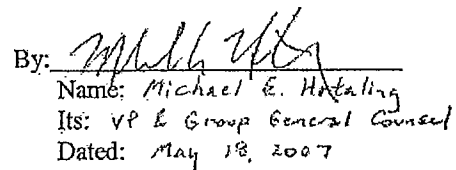 By:
Name: Michael E. Hotaling
Its: VP & Group General Counsel
Dated: May 18, 2007